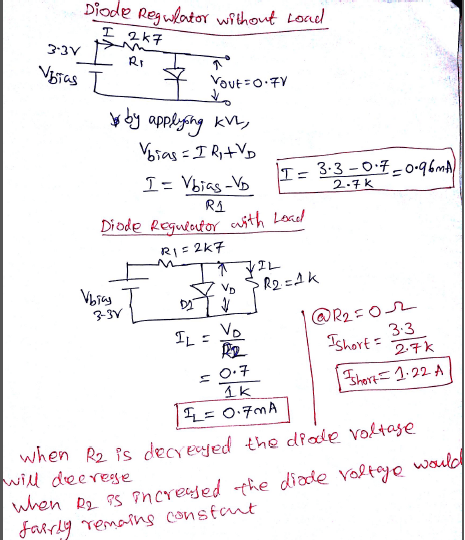 Diode Regulator without Load
I 2k7
3.3V
R1
Vbias I
Vout = 0.7V
by applying KVL,
Vbias = I R1 + VD
I = Vbias - VD / R1
I = 3.3 - 0.7 / 2.7k = 0.96mA
Diode Regulator with Load
R1 = 2k7
IL
VD R2 = 1k
Vbias
3.3V
D1
@R2 = 0 Ω
IL = VD / R2
Ishort = 3.3 / 2.7k
= 0.7 / 1k
Ishort = 1.22 A
IL = 0.7mA
when R2 is decreased the diode voltage
will decrease
when R2 is increased the diode voltage would
fairly remains constant